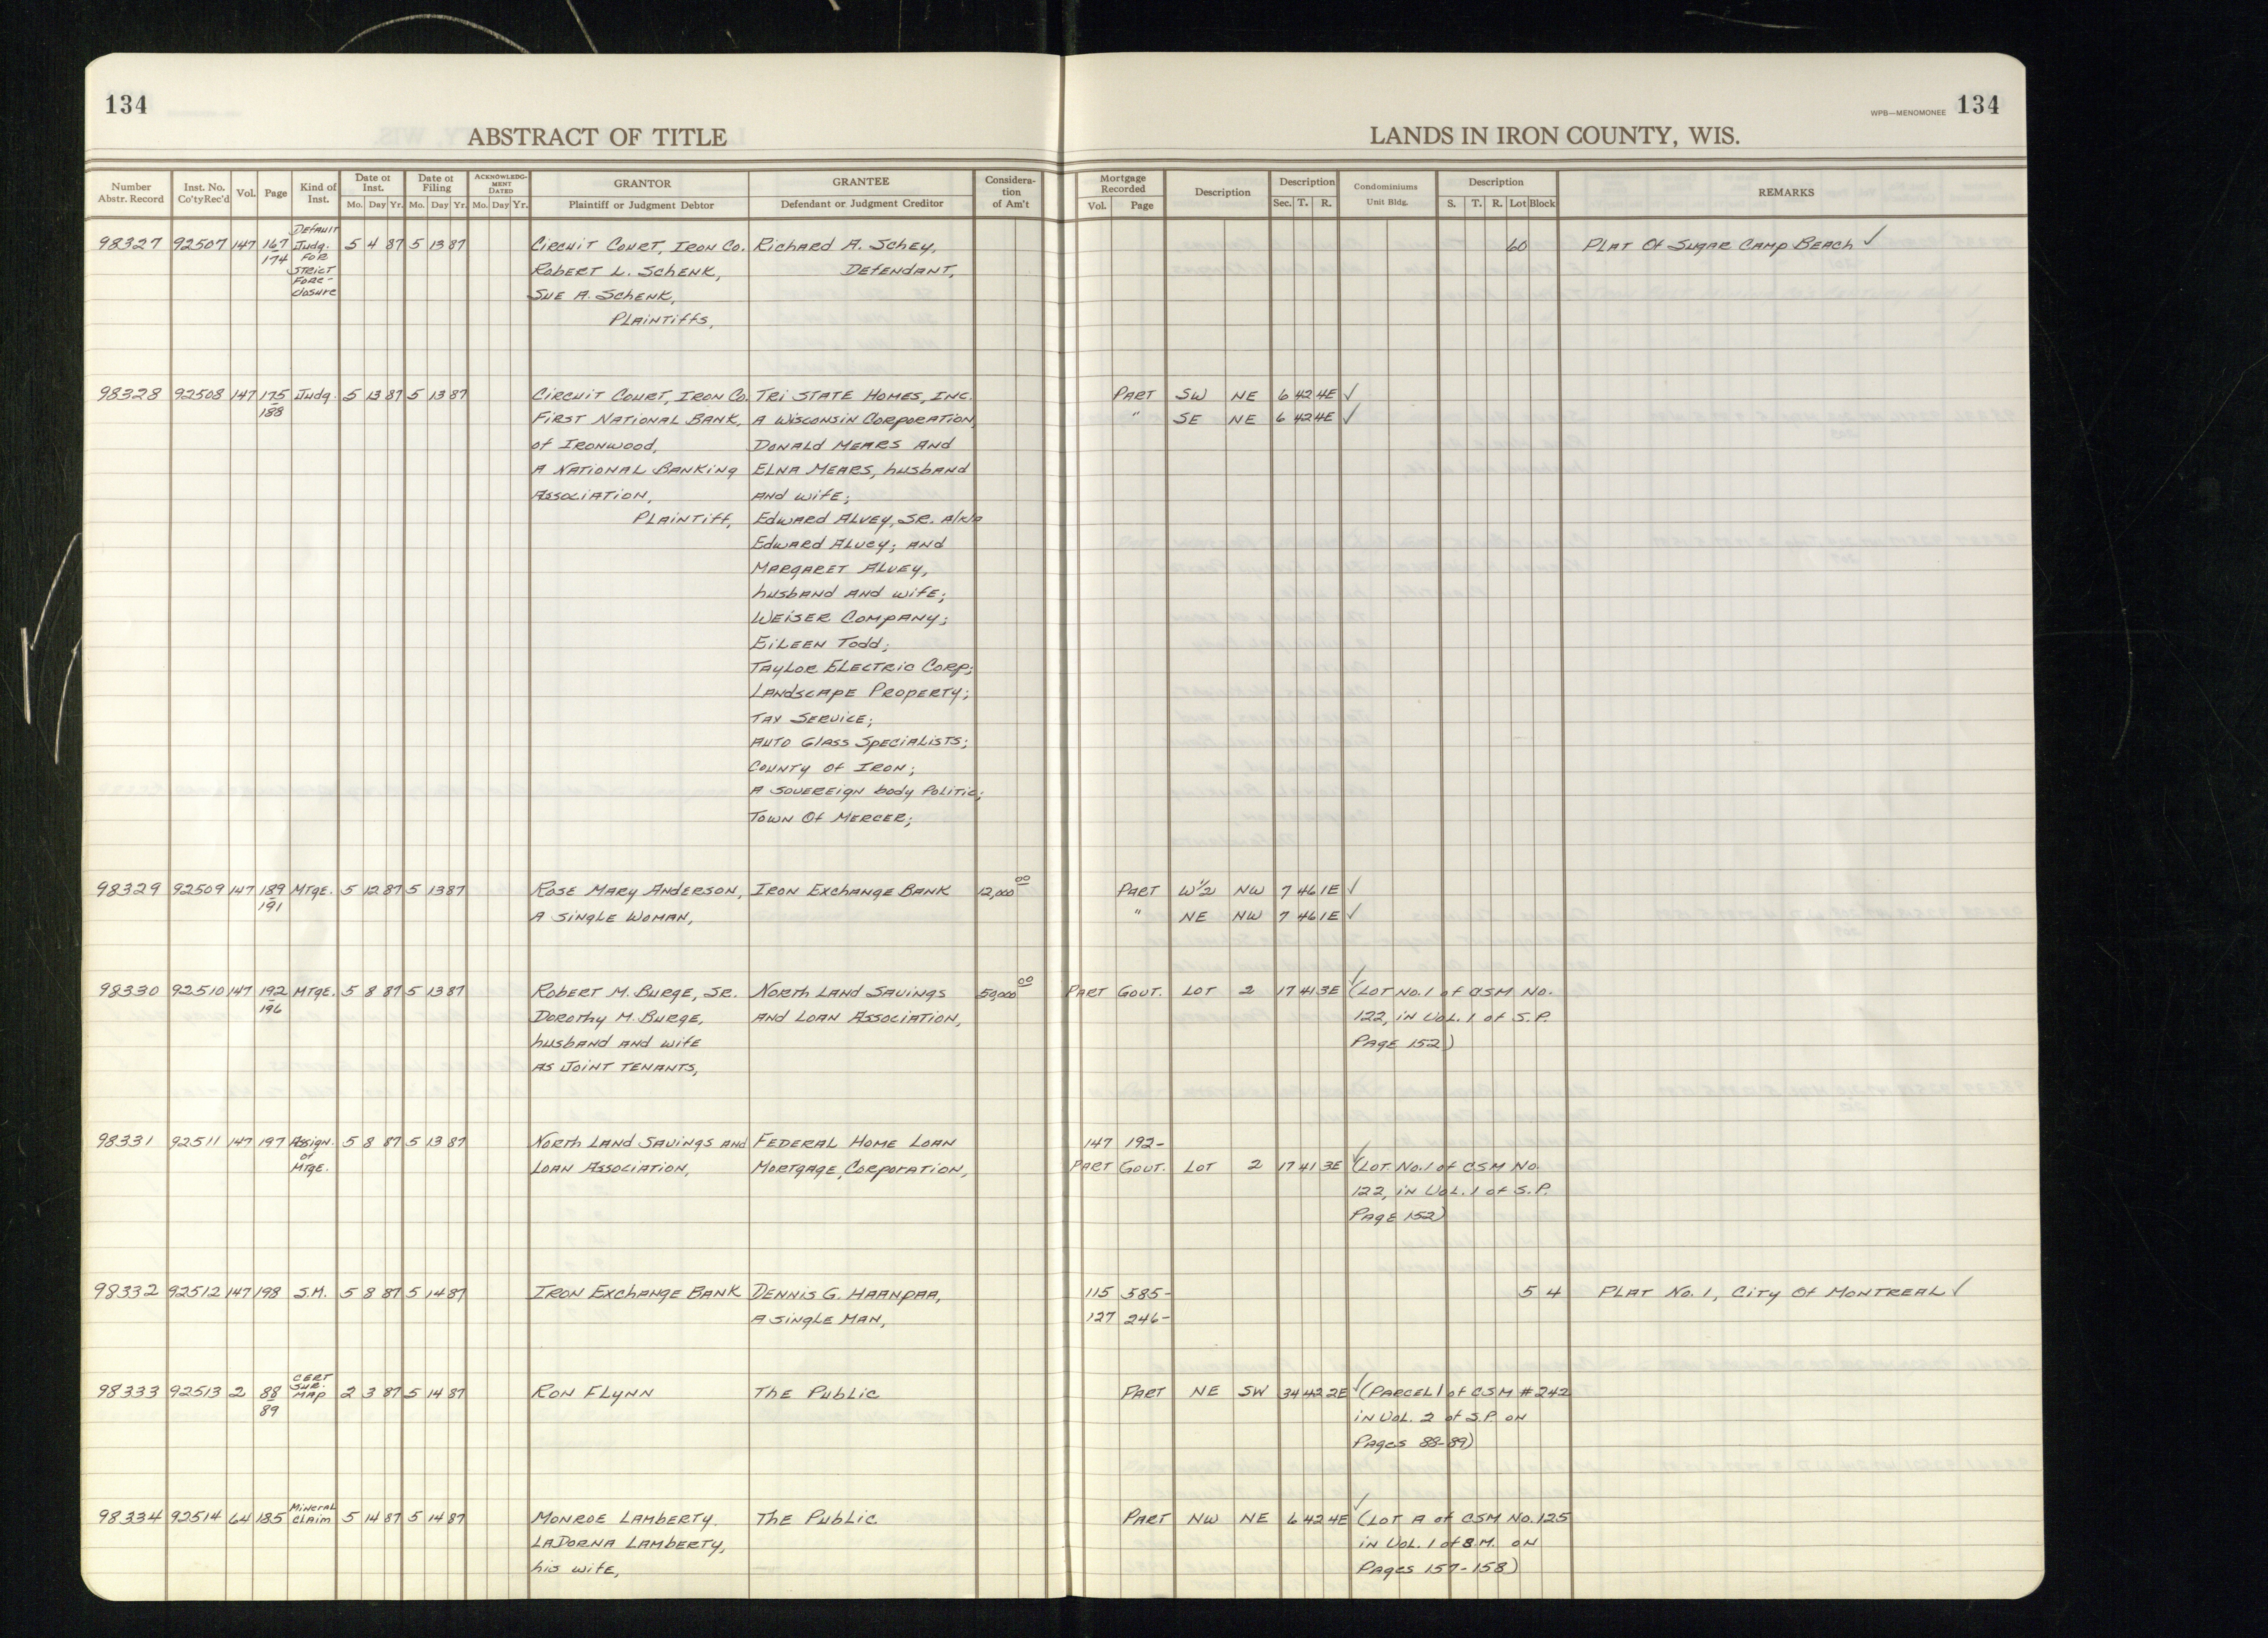 134
ABSTRACT OF TITLE
LANDS IN IRON COUNTY, WIS.
WPB—MENOMONEE 134
Number Abstr. Record Inst. No. Co'ty Rec'd Vol. Page Kind of Inst. Date of Inst. Mo. Day Yr. Date of Filing Mo. Day Yr. ACKNOWLEDGMENT DATED Mo. Day Yr. GRANTOR Plaintiff or Judgment Debtor GRANTEE Defendant or Judgment Creditor Consideration of Am't Mortgage Recorded Vol. Page Description Description Sec. T. R. Condominiums Unit Bldg. Description S. T. R. Lot Block REMARKS
98327 92507 147 167 174 Default Judg. for Strict Fore-closure 5 4 87 5 13 87 Circuit Court, Iron Co. Richard A. Schey, 60 Plat Of Sugar Camp Beach ✓
Robert L. Schenk, Defendant,
Sue A. Schenk,
Plaintiffs,
98328 92508 147 175 188 Judg. 5 13 87 5 13 87 Circuit Court, Iron Co. Tri State Homes, Inc. Part SW NE 6 42 4E ✓
First National Bank, A Wisconsin Corporation, " SE NE 6 42 4E ✓
of Ironwood, Donald Mears and
A National Banking Elna Mears, husband
Association, and wife;
Plaintiff, Edward Alvey, Sr. a/k/a
Edward Alvey; and
Margaret Alvey,
husband and wife;
Weiser Company;
Eileen Todd;
Taylor Electric Corp;
Landscape Property;
Tax Service;
Auto Glass Specialists;
County of Iron;
A sovereign body politic;
Town Of Mercer;
98329 92509 147 189 191 Mtge. 5 12 87 5 13 87 Rose Mary Anderson, Iron Exchange Bank 12,000 00 Part W 1/2 NW 7 46 1E ✓
A single woman, " NE NW 7 46 1E ✓
98330 92510 147 192 196 Mtge. 5 8 87 5 13 87 Robert M. Burge, Sr. North Land Savings 50,000 00 Part Govt. Lot 2 17 41 3E ✓ (Lot No. 1 of CSM No.
Dorothy M. Burge, and Loan Association, 122, in Vol. 1 of S.P.
husband and wife Page 152)
as joint tenants,
98331 92511 147 197 Assign. of Mtge. 5 8 87 5 13 87 North Land Savings and Federal Home Loan 147 192-
Loan Association, Mortgage Corporation, Part Govt. Lot 2 17 41 3E ✓ (Lot No. 1 of CSM No.
122, in Vol. 1 of S.P.
Page 152)
98332 92512 147 198 S.M. 5 8 87 5 14 87 Iron Exchange Bank Dennis G. Haanpaa, 115 585- 5 4 Plat No. 1, City Of Montreal ✓
A single man, 127 246-
98333 92513 2 88 89 Cert Sur. Map 2 3 87 5 14 87 Ron Flynn The Public Part NE SW 34 42 2E ✓ (Parcel 1 of CSM # 242
in Vol. 2 of S.P. on
Pages 88-89)
98334 92514 64 185 Mineral Claim 5 14 87 5 14 87 Monroe Lamberty The Public Part NW NE 6 42 4E ✓ (Lot A of CSM No. 125
LaDorna Lamberty, in Vol. 1 of S.M. on
his wife, Pages 157-158)